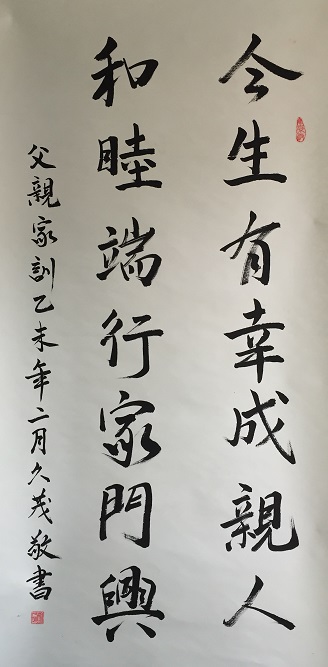 今生有幸成親人
和睦端行家門興
父親家訓乙未年二月久茂敬書